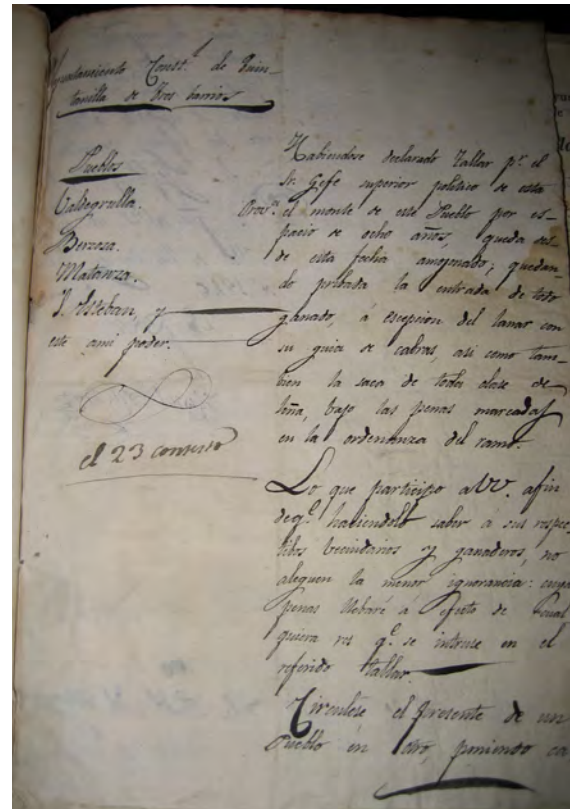 Ayuntamiento Const.l de Quin-
tanilla de tres barrios
Pueblos
Valdegrulla.
Berzosa.
Matanza.
S. Esteban, y
este ami poder.
el 23 contesto
Habiendose declarado tallar p.r el
Sr. Gefe superior politico de esta
Prov.a el monte de este Pueblo por es-
pacio de ocho años, queda des-
de esta fecha amojonado; quedan-
do pribada la entrada de todo
ganado, á escepcion del lanar con
su guia de cabras, asi como tam-
bien la saca de toda clase de
leña, bajo las penas marcadas
en la ordenanza del ramo.
Lo que participo a VV. afin
de q.e haciendolo saber á sus respec-
tibos vecindarios y ganaderos, no
aleguen la menor ignorancia: cuyas
penas llebaré a efecto de cual
quiera res q.e se intruse en el
referido tallar.
Circulese el presente de un
Pueblo en otro, poniendo ca